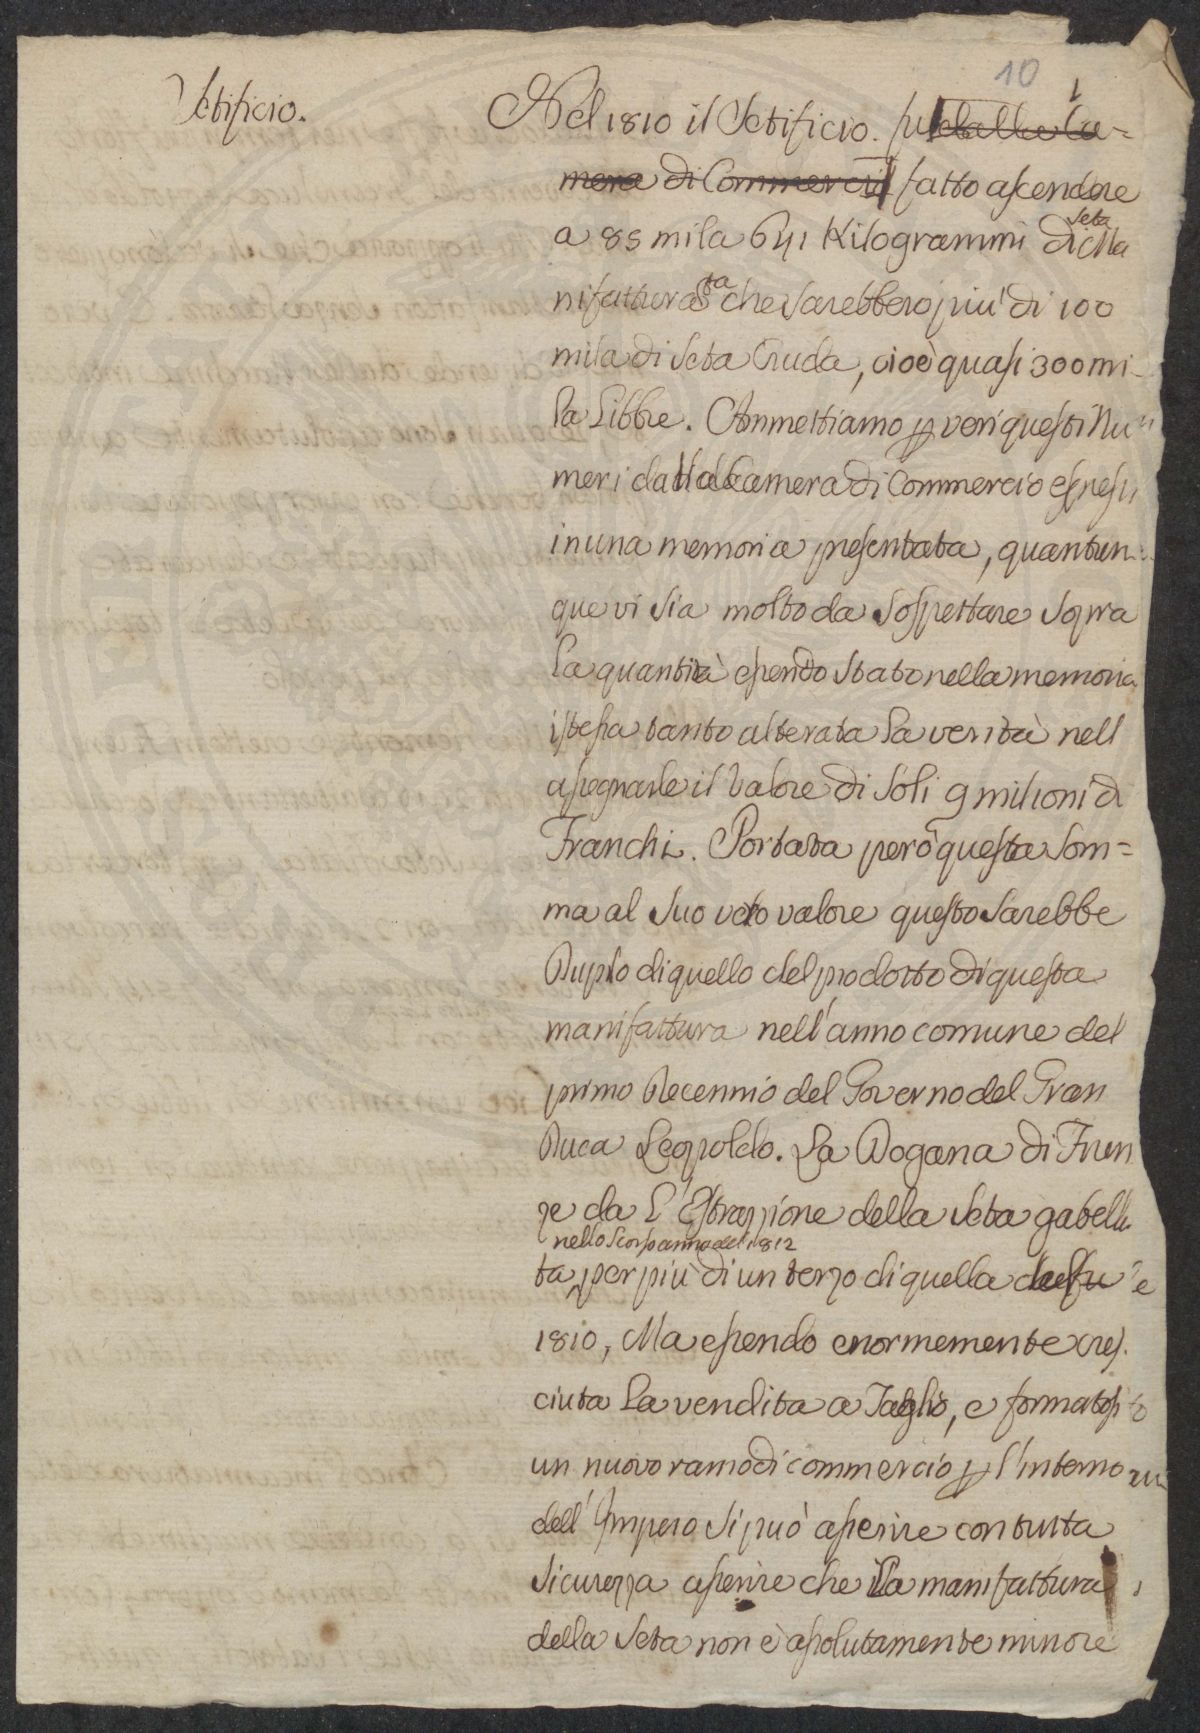 10
Setificio.
Nel 1810 il Setificio. fu dalla Ca=
mera di Commercio fatto ascendere
seta
a 85 mila 641 Kilogrammi di Ma
ta
nifattura che sarebbero piu' di 100
mila di Seta Cruda, cioè quasi 300 mi-
la Libbre. Ammettiamo p veri questi Nu
meri dalla Camera di Commercio espressi
in una memoria presentata, quantun-
que vi sia molto da sospettare sopra
la quantità essendo stato nella memoria
istessa tanto alterata la verità nell
assegnarle il valore di soli 9 milioni di
Franchi. Portata però questa som=
ma al suo vero valore questo sarebbe
Duplo di quello del prodotto di questa
manifattura nell'anno comune del
primo Decennio del Governo del Gran
Duca Leopoldo. La Dogana di Firen
ze da L'Estrazzione della Seta gabella
nello scorso anno del 1812
ta per più di un terzo di quella
1810, Ma essendo enormemente cres.
ciuta la vendita a Taglio, e formatosi
un nuovo ramo di commercio p l'interno
dell'Impero si può asserire con tutta
sicurezza asserire che la manifattura
della Seta non è assolutamente minore